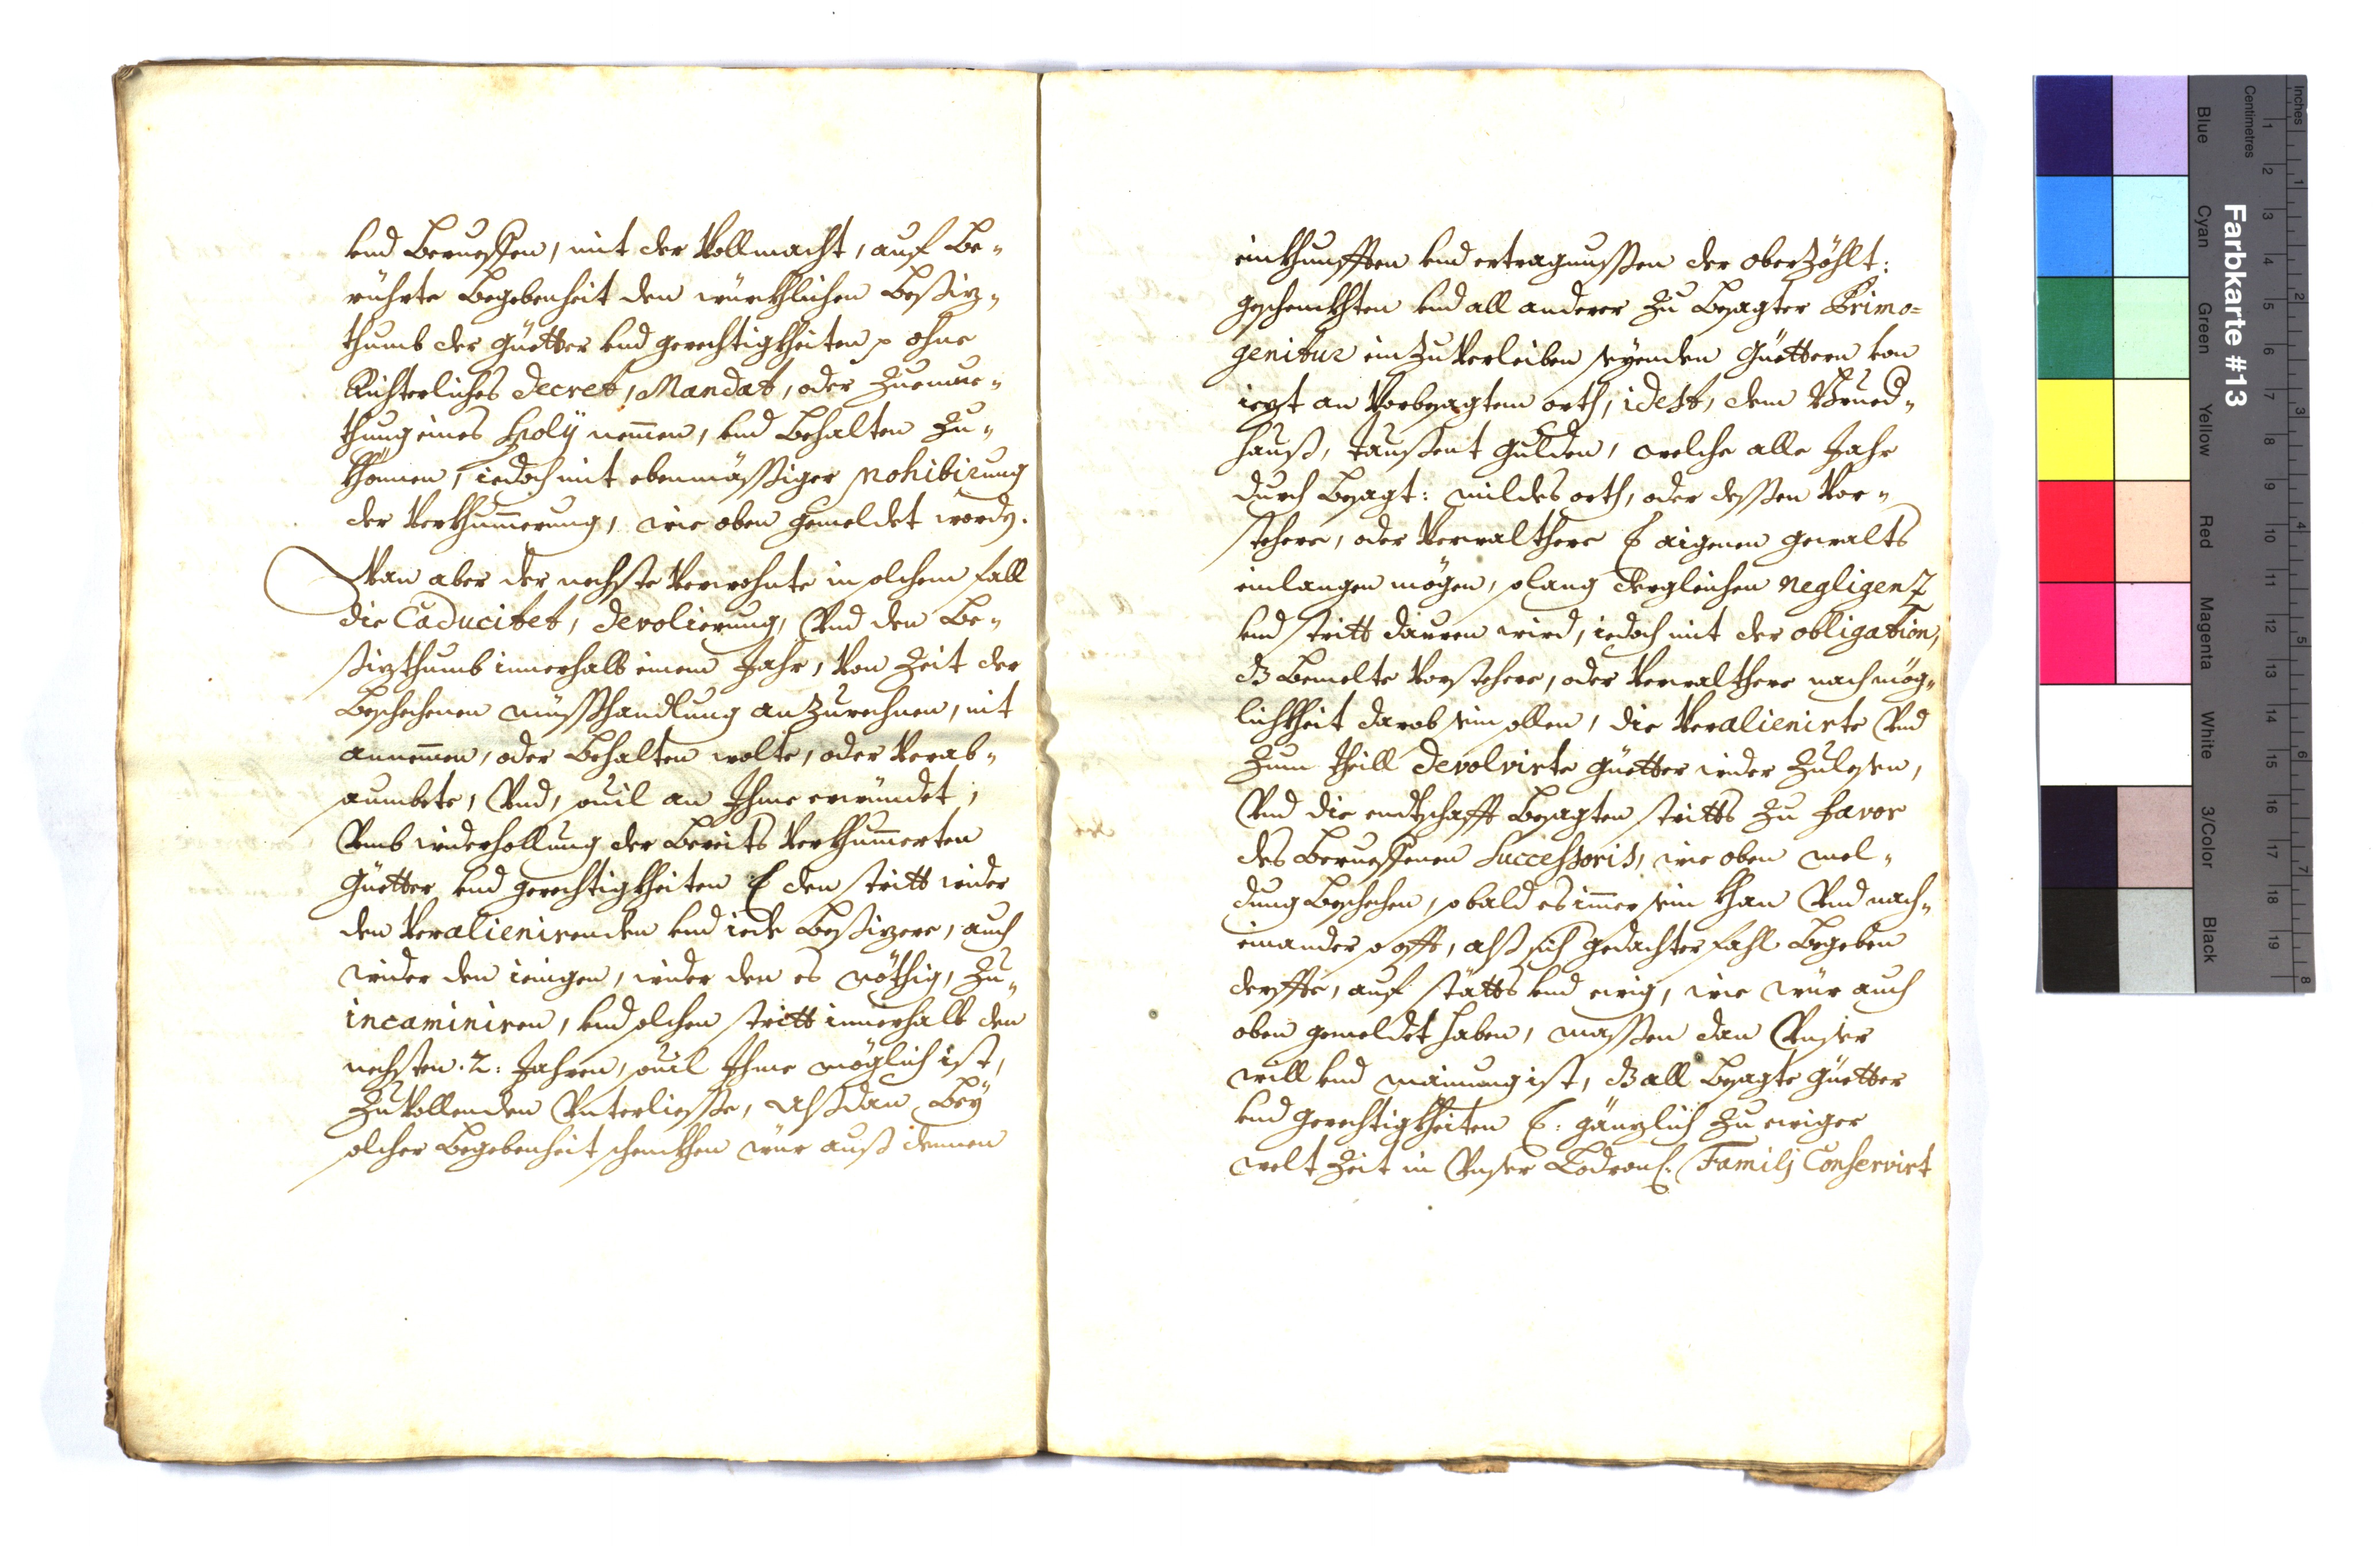 vnd Beruessen, mit der Vollmacht, auf Be„
rührte Begebenheit den würkhlichen Besiz„
thumb der güetter vnd gerechtigkheiten p ohne
Richterliches Decret, Mandat, oder Zuemue„
thung eines Holij nemmen, vnd Behalten Zu„
khönnen, iedoch mit ebenmässiger prohibirung
der Verkhummerung, wie oben gemeldet wordn.
Wan aber der nechste Verwohnte in solchem fall
die Caducitet, Devolierung, Vnd den Be„
sizthumb innerhalb einem Jahr, Von Zeit der
Beschechenen müsshandlung anzurechnen, nit
annemmen, oder Behalten wolte, oder Verab„
saumbete, Vnd, souil an Ihme erwündet,
Vmb widerhollung der Bereits Verkhummerten
Güetter vnd gerechtigkheiten den stritt wider
den Veralienirenden vnd iede Besizere, auch
wider den ienigen, wider den es nöthig, Zu„
incaminiren, vnd solchen stritt innerhalb den
nechsten .2: Jahren, souil Ihme möglich ist,
Zu Vollenden Vnterliesse, Alssdan Bey
solcher Begebenheit schenkhen wür auss denen
einkhunfften vnd ertragnussen der oberzöhlt:
geschenkhten vnd all anderer Zu Besagter Primo=
genitur einzuverleiben seyenden Güettern von
iezt an Vorbesagtem orth, idest, dem Brued„
hauss, taussent gulden, welche alle Jahr
durch Besagt: mildes orth, oder dessen Vor„
stehere, oder Verwalthere aigenen gewalts
einlangen mögen, solang dergleichen negligenz
vnd stritt dauren wird, iedoch mit der obligation,
dz Bemelte Vorstehere, oder Verwalthere nach mög„
lichkheit darob sein sollen, die Veralienirte Vnd
Zum theill Devolvirte güetter wider Zulesen,
Vnd die endtschafft Besagten stritts Zu favor
des Beruessenen Successoris, wie oben mel„
dung Beschechen, sobald es immer sein khan Vnd nach„
einander so offt, alss sich gedachter fahl Begeben
derffte, auf stätts vnd ewig, wie wür auch
oben gemeldet haben, massen dan Vnser
will vnd mainung ist, dz all Besagte güetter
vnd gerechtigkheiten gänzlich Zu ewiger
welt Zeit in Vnser Lodron: Familj Conservirt